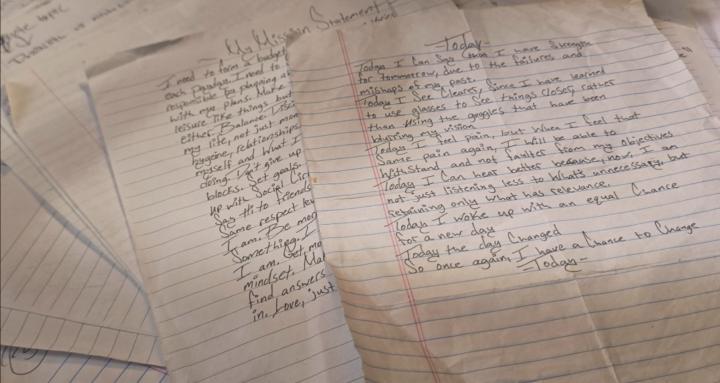 My Mission Statement
I need to form a budget
each Payday. I need to
responsible by planning
with my plans. Make
leisure like things but
either. Balance.
my life, not just
hygiene, relationships
myself and what I
doing. Don't give up
blocks. Set goals.
up with Social
Say Hi to friends
Same respect
I am. Be
Something. I
I am. Get
mindset.
find answers
in. Love, just
-Today-
Today I Can Say that I have Strength
for tommorrow, due to the failures and
mishaps of my past.
Today I See Clearer, Since I have learned
to use glasses to See things closer, rather
than using the goggles that have been
bluring my vision
Today I feel pain, but when I feel that
Same pain again, I will be able to
withstand and not faulter from my objectives
Today I Can hear better because, now, I am
not just listening less to what's unnecessary, but
retaining only what has relevance.
Today I woke up with an equal Chance
for a new day
Today the day Changed
So once again, I have a Chance to Change
-Today-